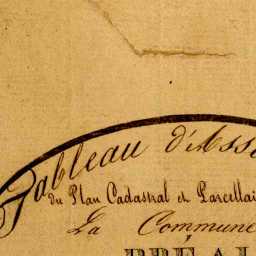 Tableau d'Ass
du Plan Cadastral et Parcellai
La Commune